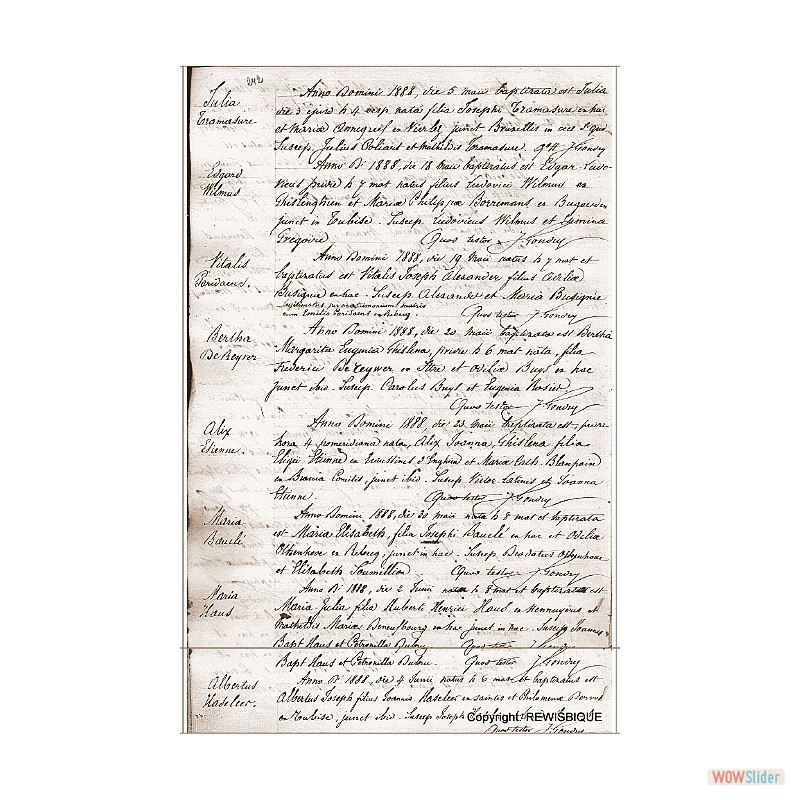 242
Julia
Tramasure
Anno Domini 1888, die 5 maii baptizata est Julia
die 3 ejusd h 4 vesp nata filia Josephi Tramasure en hac
et Maria en Vierles junct Bruxelles in
Suscep. Julius et Mathildis Tramasure. J. Gondry
Edgard
Wilmus
Anno Di 1888, die 18 maii baptizatus est Edgar Ludo-
vicus pridie h 7 mat natus filius Ludovici Wilmus en
Ghislenghien et Maria Philippa Borremans en
junct in Tubise. Suscep Ludovicus Wilmus et
Gregoire. Quos testor J. Gondry
Vitalis
Paridaens.
Anno Domini 1888, die 19 Maii natus h 7 mat et
baptizatus est Vitalis Joseph Alexander filius
Busignie en hac. Suscep. Alexander et Maria Busignie
legitimatus per matrimonium matris
cum Emilio Paridaens en Rebecq. Quos testor J. Gondry
Bertha
De Keyzer
Anno Domini 1888, die 20 maii baptizata est Bertha
Margarita Eugenia Ghislena, pridie h 6 mat nata, filia
Frederici De Keyzer en Ittre et Odilia Buyl en hac
junct ibid. Suscep. Carolus Buyl et Eugenia Rosier
Quos testor J. Gondry
Alix
Etienne.
Anno Domini 1888, die 23 maii baptizata est, pridie
hora 4 pomeridiana nata, Alix Joanna Ghislena filia
Eligii Etienne en Ecaussines d'Enghien et Maria Cath. Blanpain
en Brania Comitis, junct ibid. Suscep Victor Latinis et Joanna
Etienne. Quos testor J. Gondry
Maria
Anno Domini 1888, die 30 maii nata h 8 mat et baptizata
est Maria Elisabeth, filia Josephi en hac et Odilia
en Rebecq, junct in hac. Suscep Deodatus
et Elisabeth Soumillion. Quos testor J. Gondry
Maria
Haus
Anno Di 1888, die 2 Junii nata h 8 mat et baptizata est
Maria Julia filia Huberti Henrici Haus en Hennuyeres et
Mathildis Maria en hac junct in hac. Suscep Joannes
Bapt Haus et Petronilla Quos testor J. Gondry
Bapt Haus et Petronilla Quos testor J. Gondry
Albertus
Hadeleer.
Anno Di 1888, die 4 Junii natus h 6 mat et baptizatus est
Albertus Joseph filius Joannis Hadeleer en Saintes et Philomena
en Tubise, junct ibid. Suscep Joseph
Quos testor J. Gondry
Copyright: REWISBIQUE
WOWSlider